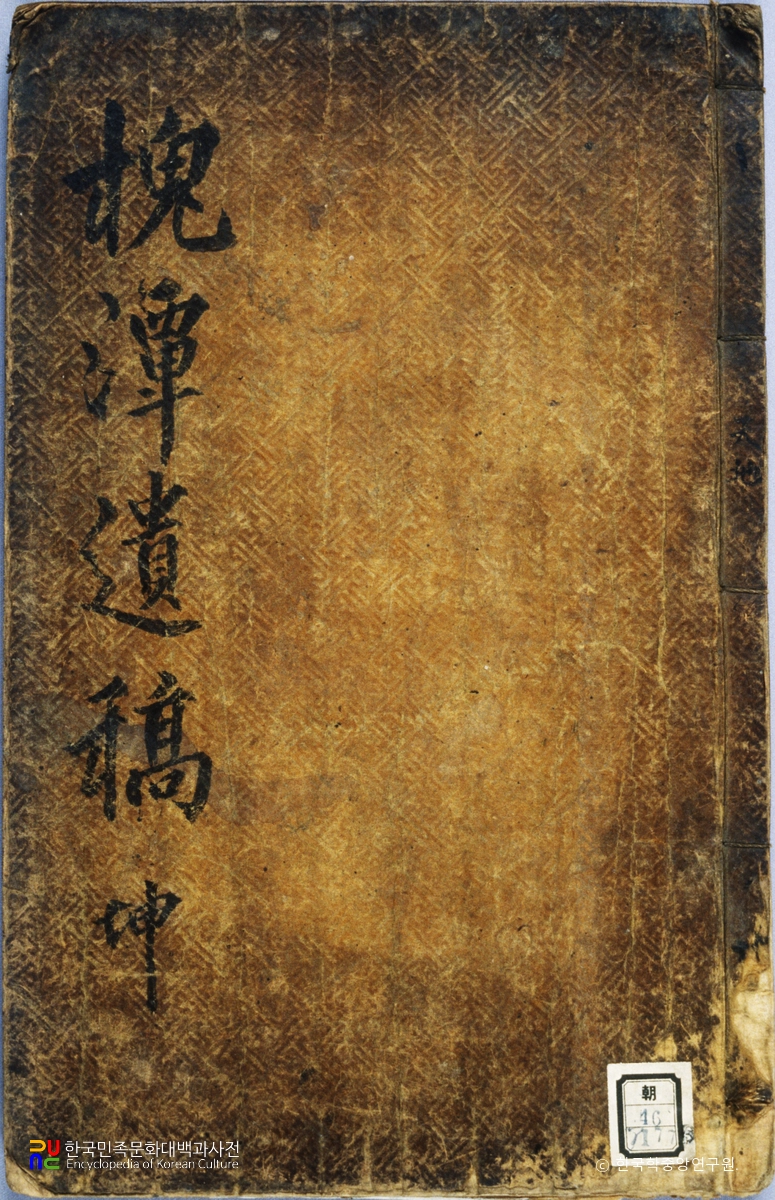 槐潭遺稿 坤
朝
46
한국민족문화대백과사전
Encyclopedia of Korean Culture
© 한국학중앙연구원